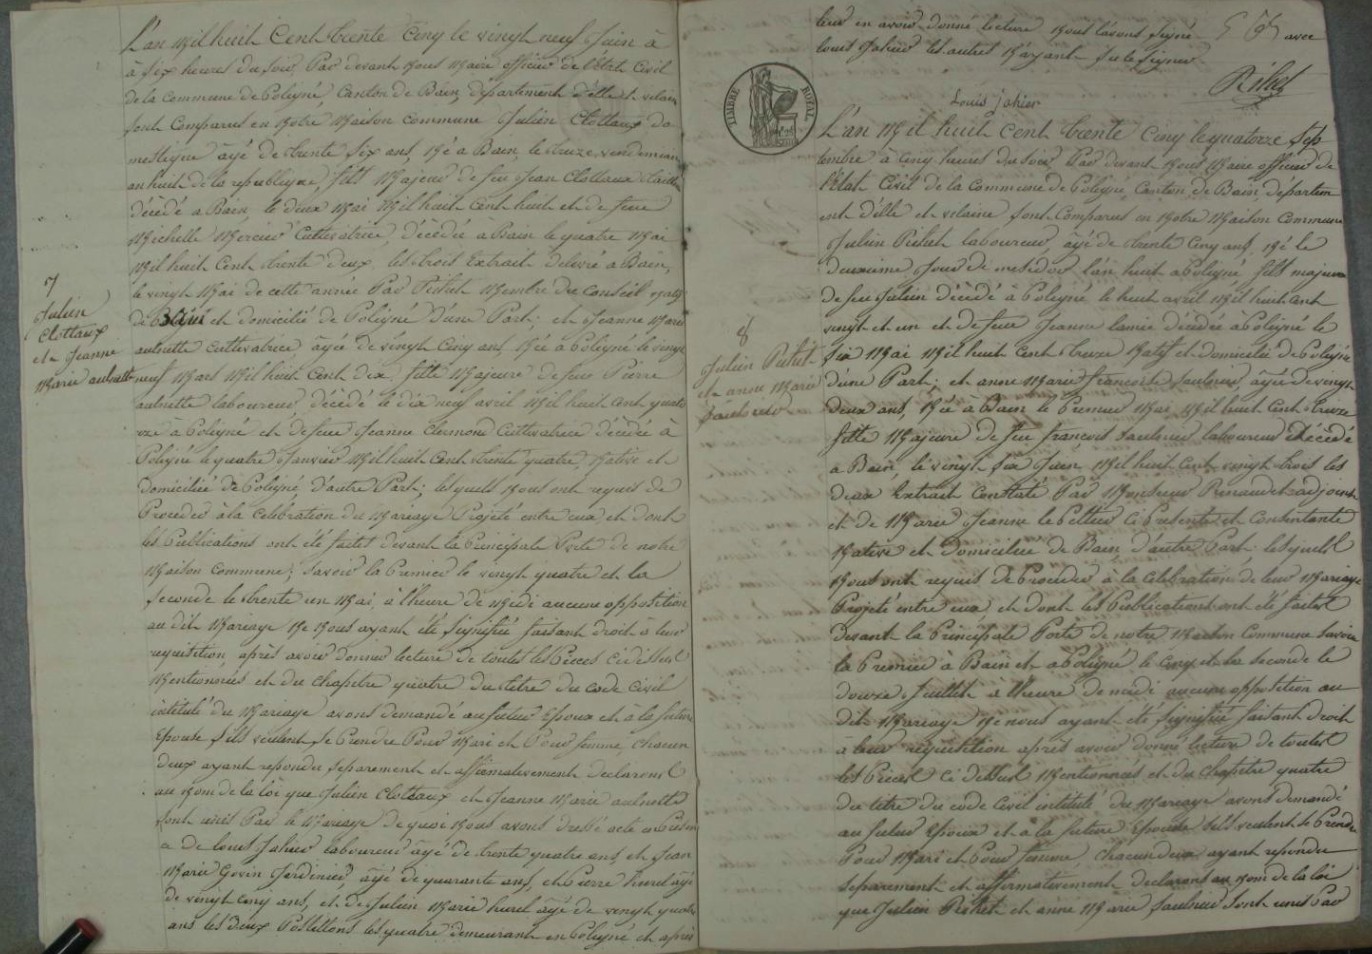 L'an Mil huit Cent trente Cinq le vingt neuf Juin à
à Six heures du Soir Par devant Nous Maire officier de l'Etat Civil
de la Commune de Poligné, Canton de Bain, departement d'ille et vilaine
Sont Comparus en Notre Maison commune Julien Clottaux do
mestique âgé de trente Six ans, Né à Bain, le treize vendemiaire
an huit de la republique, fils Majeur de feu Jean Clottaux
décédé a Bain le deux Mai Mil huit Cent huit et de feue
Michelle Mercier Cultivatrice, décédée a Bain le quatre Mai
Mil huit Cent trente deux, les trois Extraits delivré a Bain,
le vingt Mai de cette année Par Pichet Membre du Conseil natif
de Bain et domicilié de Poligné d'une Part; et Jeanne Marie
aulnette Cultivatrice âgée de vingt Cinq ans Née a Poligné le vingt
neuf Mars Mil huit Cent Dix, fille Majeure de feu Pierre
aulnette laboureur, décédé le dix neuf avril Mil huit Cent quato
rze a Poligné et de feue Jeanne Clermond Cultivatrice décédée à
Poligné le quatre Janvier Mil huit Cent trente quatre, Native et
domiciliée de Poligné, d'autre Part; lesquels Nous ont requis de
Proceder à la Celebration du Mariage Projeté entre eux et dont
les Publications ont été faites devant la Principale Porte de notre
Maison Commune; Savoir la Premier le vingt quatre et la
Seconde le trente un Mai, à l'heure de Midi aucune opposition
au dit Mariage Ne Nous ayant été Signifié faisant droit à leur
requisition, après avoir donner lecture de toutes les Pièces ci dessus
Mentionnées et du Chapitre quatre du titre du code Civil
intitulé du Mariage avons demandé au futur Epoux et à la future
Epouse s'ils veulent se Prendre Pour Mari et Pour femme, Chacun
deux ayant repondu Separement et affirmativement declarons
au Nom de la loi que Julien Clottaux et Jeanne Marie aulnette
Sont unis Par le Mariage de quoi Nous avons dressé acte en Présen
ce de louis Jahier laboureur âgé de trente quatre ans, et Jean
Marie Gorin Jardinier, âgé de quarante ans, et Pierre hurel âgé
de vingt Cinq ans, et de Julien Marie hurel âgé de vingt quatre
ans les Deux Postillons les quatre demeurant en Poligné et après
7
Julien
Clottaux
et Jeanne
Marie aulnette
leur en avoir donné lecture Nous l'avons Signé avec
louis Jahier les autres N'ayant Su le Signer
Louis Jahier
TIMBRE ROYAL
L'an Mil huit Cent trente Cinq le quatorze Sep
tembre à Cinq heures du Soir Par devant Nous Maire officier de
l'Etat Civil de la Commune de Poligné, Canton de Bain, departem
ent d'ille et vilaine Sont Comparus en Notre Maison Commune
Julien Pichet laboureur, âgé de trente Cinq ans, Né le
deuxième Jour de messidor l'an huit a Poligné fils majeur
de feu Julien décédé à Poligné le huit avril Mil huit Cent
vingt et un et de feue Jeanne lamie décédée à Poligné le
Six Mai Mil huit Cent treize Natif et domicilié de Poligné
d'une Part; et anne Marie françoise Saulnier, âgée de vingt
deux ans, Née à Bain le Premier Mai Mil huit Cent treize
fille Majeure de feu françois Saulnier laboureur décédé
a Bain, le vingt Six Juin Mil huit Cent vingt trois les
Deux Extrait Constaté Par Monsieur Renaud adjoint
et de Marie Jeanne le Peltier Ci Presente et Consentante
Native et domiciliée de Bain d'autre Part lesquels
Nous ont requis de Proceder à la Celebration de leur Mariage
Projeté entre eux et dont les Publications ont été faites
devant la Principale Porte de notre Maison Commune Savoir
la Premier à Bain et a Poligné le Cinq et la Seconde le
douze Juillet a l'heure de midi aucune opposition au
dit Mariage Ne nous ayant été Signifié faisant droit
à leur requisition après avoir donné lecture de toutes
les Pièces Ci dessus Mentionnées et du Chapitre quatre
du titre du code Civil intitulé du Mariage avons demandé
au futur Epoux et à la future Epouse S'ils veulent Se Prendre
Pour Mari et Pour femme, chacun deux ayant repondu
Separement et affirmativement declarons au Nom de la loi
que Julien Pichet et anne Marie Saulnier Sont unis Par
8
Julien Pichet
et anne Marie
Saulnier